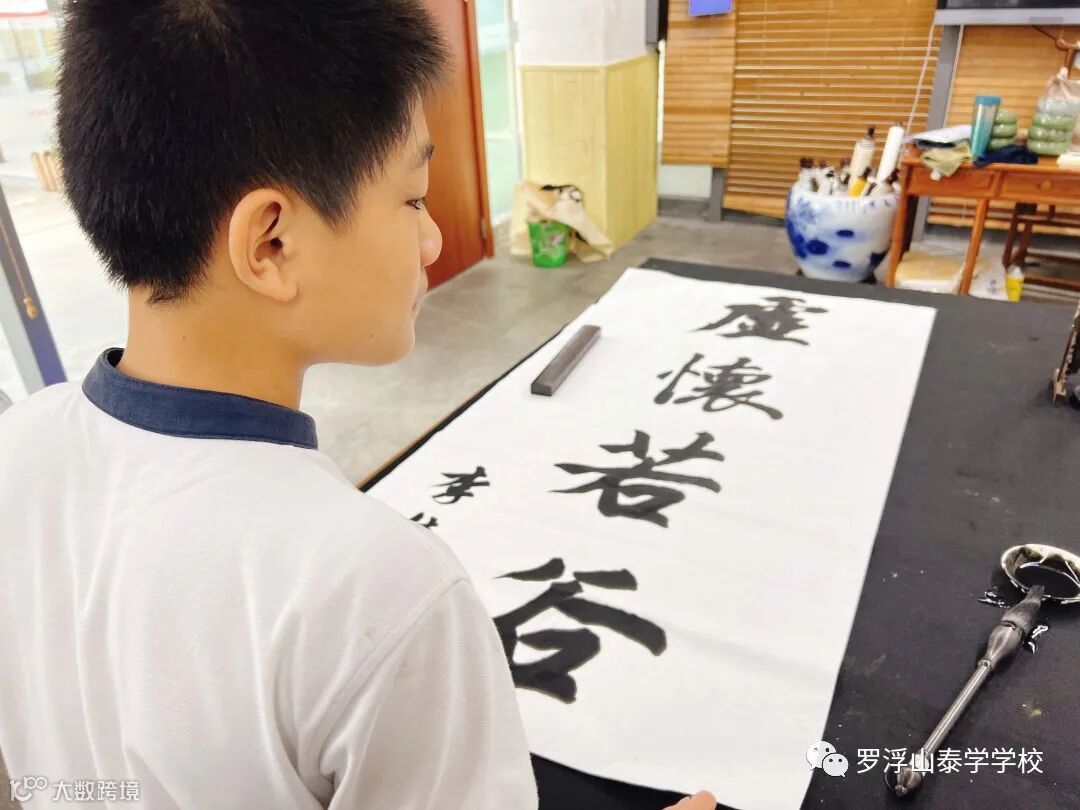 虚
懷
若
谷
李
罗浮山泰学学校
大数跨境